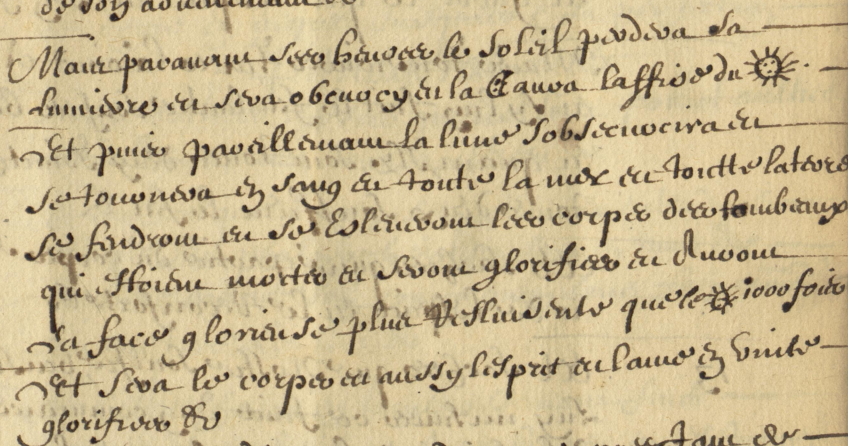 de son advenement
Mais paravant sees heures le Soleil perdera sa
lumierre et sera obcurcy et la laffree du
Et puies pareillement la lune s'obsecurcira et
se tournera en sang et toute la mer et toutte laterre
se fendront et se Esleveront lees corpes dees tombeaux
qui estoient mortes et seront glorifiees et auront
La face glorieuse plus Resluisente que le 1000 foies
Et sera le corpes et aussy lesprit et lame en Unite
glorifiees &c